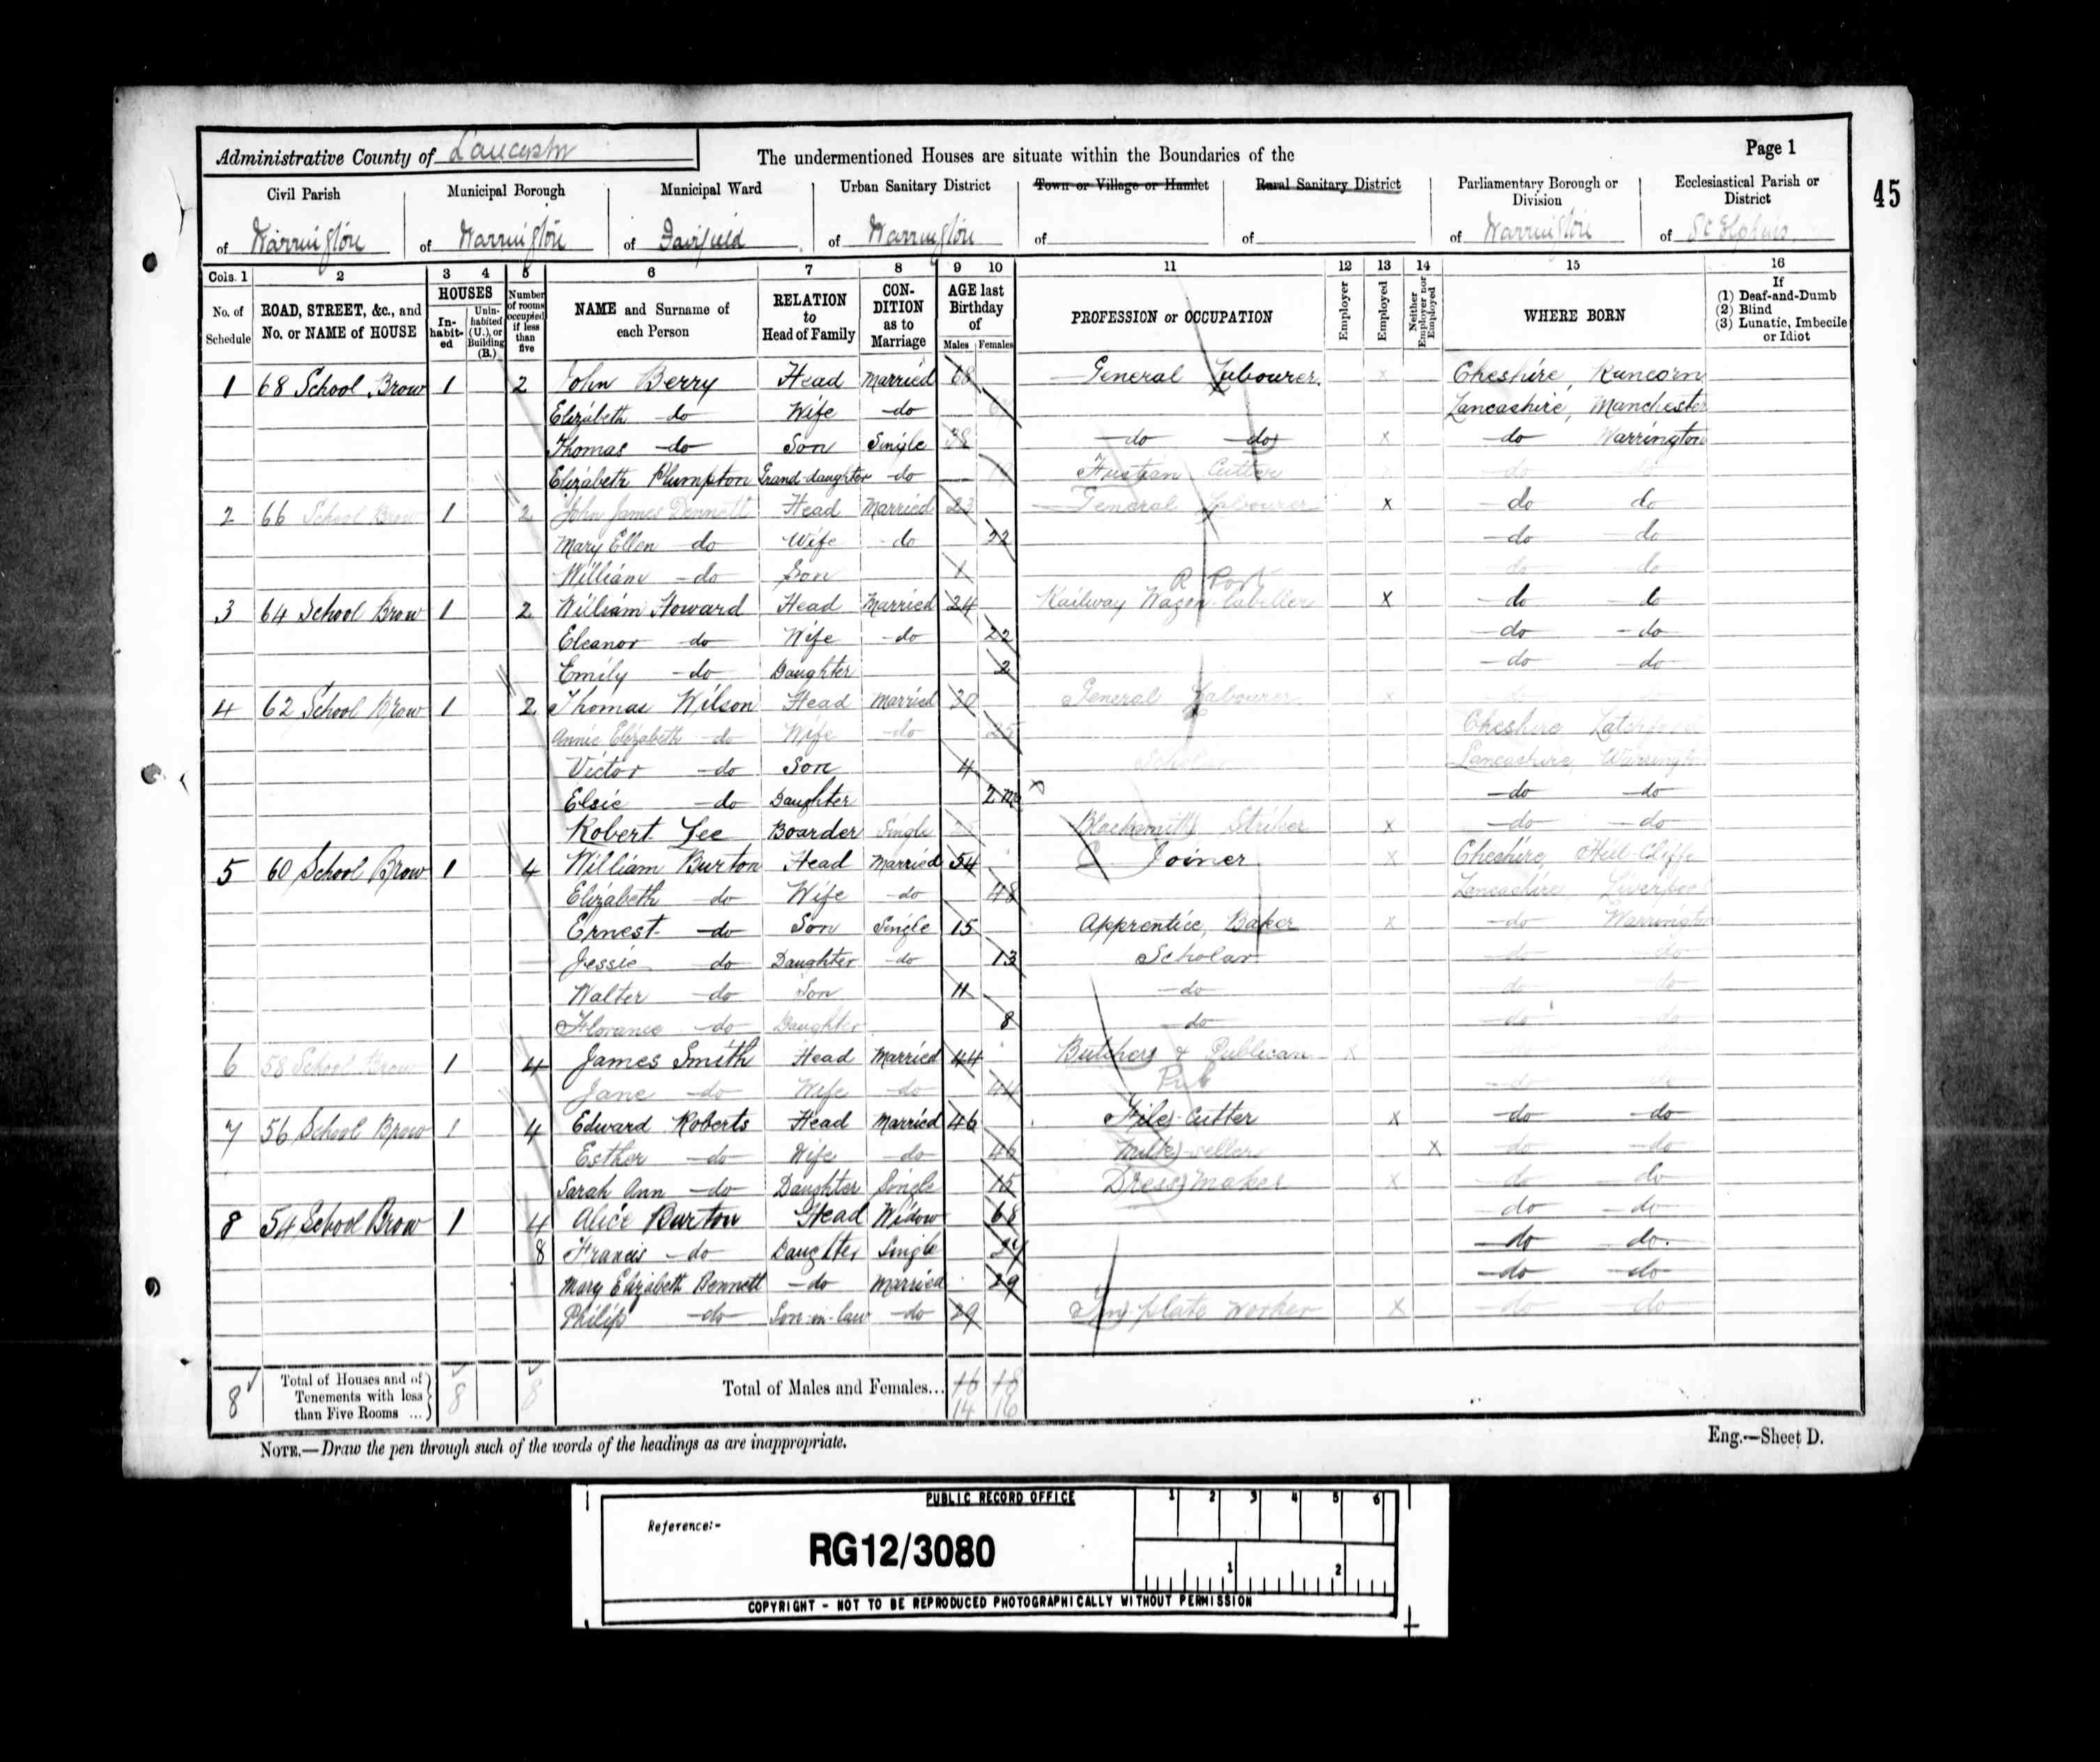 Administrative County of Lancaster
The undermentioned Houses are situate within the Boundaries of the
Page 1
45
Civil Parish of Warrington
Municipal Borough of Warrington
Municipal Ward of Fairfield
Urban Sanitary District of Warrington
Town or Village or Hamlet of
Rural Sanitary District of
Parliamentary Borough or Division of Warrington
Ecclesiastical Parish or District of St Elphins
Cols. 1 2 3 4 5 6 7 8 9 10 11 12 13 14 15 16
No. of Schedule
ROAD, STREET, &c., and No. or NAME of HOUSE
HOUSES
In-habit-ed
Unin-habited (U.), or Building (B.)
Number of rooms occupied if less than five
NAME and Surname of each Person
RELATION to Head of Family
CON-DITION as to Marriage
AGE last Birthday of
Males Females
PROFESSION or OCCUPATION
Employer
Employed
Neither Employer nor Employed
WHERE BORN
If (1) Deaf-and-Dumb (2) Blind (3) Lunatic, Imbecile or Idiot
1 68 School Brow 1 2 John Berry Head Married 68 General Labourer. x Cheshire, Runcorn
Elizabeth do Wife do Lancashire, Manchester
Thomas do Son Single 38 do do x do Warrington
Elizabeth Plumpton Grand-daughter do Fustian Cutter do do
2 66 School Brow 1 2 John James Dennett Head Married 23 General Labourer x do do
Mary Ellen do Wife do 22 do do
William do Son 1 do do
R Port
3 64 School Brow 1 2 William Howard Head Married 24 Railway Wagon-labeller x do do
Eleanor do Wife do 22 do do
Emily do Daughter 2 do do
4 62 School Brow 1 2 Thomas Wilson Head Married 30 General Labourer x do do
Annie Elizabeth do Wife do 25 Cheshire Latchford
Victor do Son 4 Scholar Lancashire, Warrington
Elsie do Daughter 2 mo do do
Robert Lee Boarder Single Blacksmith's Striker x do do
5 60 School Brow 1 4 William Burton Head Married 54 Joiner x Cheshire, Hill-Cliffe
Elizabeth do Wife do 48 Lancashire, Liverpool
Ernest do Son Single 15 Apprentice, Baker x do Warrington
Jessie do Daughter do 13 Scholar do do
Walter do Son 11 do do do
Florance do Daughter 8 do do do
6 58 School Brow 1 4 James Smith Head Married 44 Butcher & Publican x do do
Pub
Jane do Wife do 44 do do
7 56 School Brow 1 4 Edward Roberts Head Married 46 File Cutter x do do
Esther do Wife do 46 Milk-seller x do do
Sarah Ann do Daughter Single 15 Dress Maker x do do
8 54 School Brow 1 4 Alice Burton Head Widow 68 do do
8 Francis do Daughter Single 24 do do.
Mary Elizabeth Bennett do Married 29 do do
Philip do Son-in-law do 29 Tin plate worker x do do
8 Total of Houses and of Tenements with less than Five Rooms ... 8 8 Total of Males and Females... 16 18
14 16
NOTE.—Draw the pen through such of the words of the headings as are inappropriate.
Eng.—Sheet D.
PUBLIC RECORD OFFICE
1 2 3 4 5 6
Reference:-
RG12/3080
1 2
COPYRIGHT - NOT TO BE REPRODUCED PHOTOGRAPHICALLY WITHOUT PERMISSION